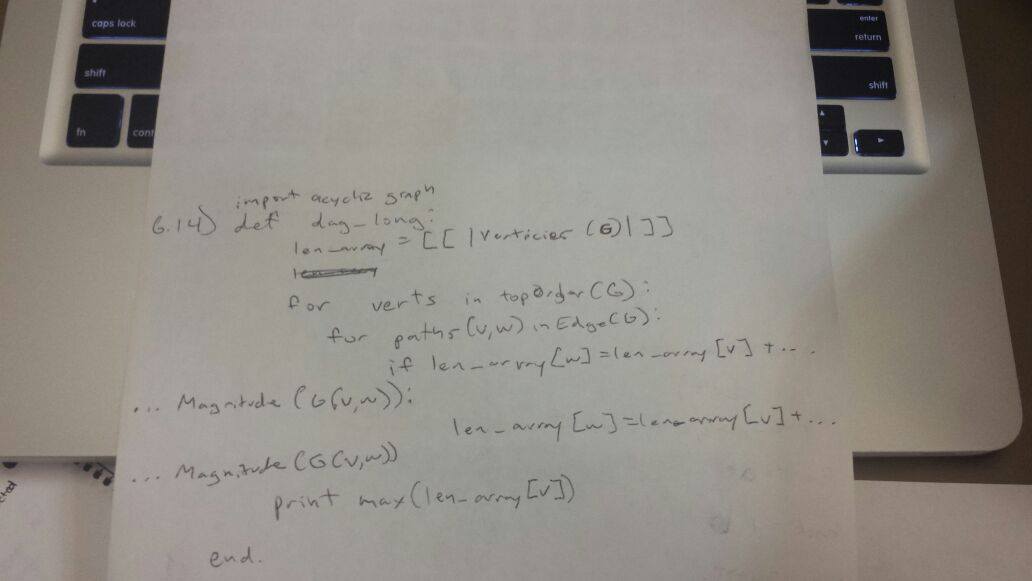 caps lock
enter
return
shift
shift
fn
cont
import acyclic graph
6.14) def dag_long:
len_array = [[ |Verticies (G)| ]]
for verts in topOrder(G):
for paths(v,w) in Edge(G):
if len_array[w]=len_array[v] + ...
... Magnitude (G(v,w)):
len_array[w]=len_array[v]+...
... Magnitude (G(v,w))
print max(len_array[v])
end.